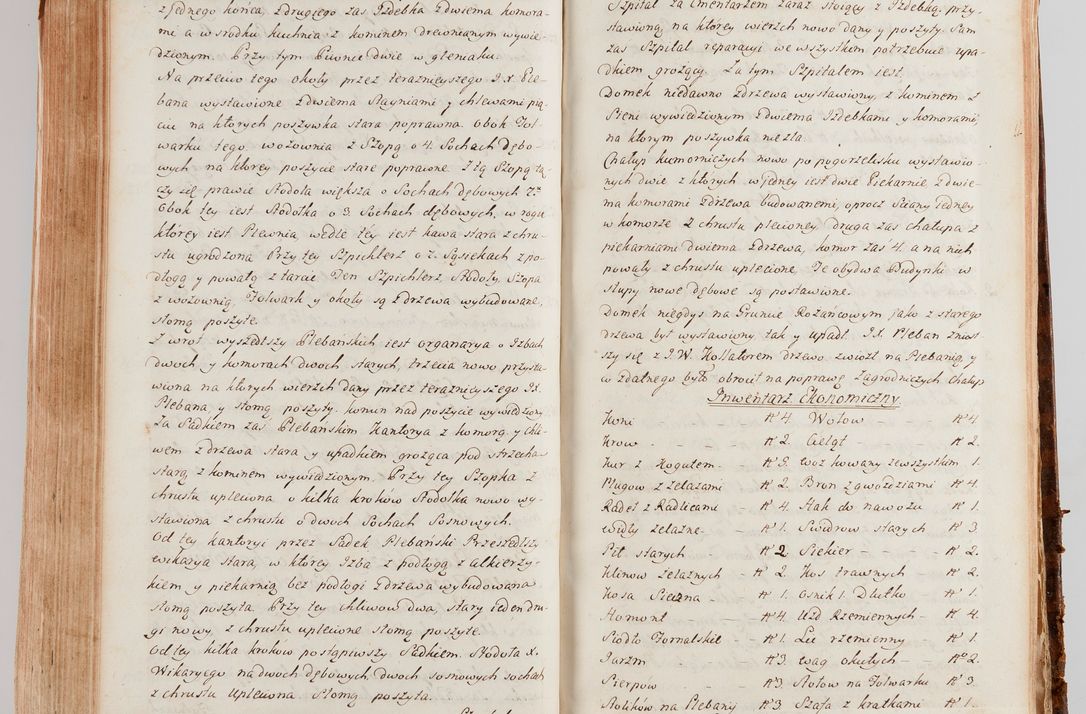 z jednego końca, z drugiego zas Izdebka z dwiema komora-
mi a w srodku kuchnia z kominem drewnianym wywie-
dzionym. Przy tym Piwnice dwie w
Na przeciw tego okoły przez teraznieyszego I. X. Ple-
bana wystawione z dwiema Stayniami y chlewami pią-
ciu na ktorych poszywka stara poprawna. obok Fol-
warku tego wozownia z Szopą o 4. Sochach Dębo-
wych na ktorey poszycie stare poprawne. Z tą Szopą łą-
czy się prawie Stodoła większa o Sochach dębowych 7.
obok tey iest Stodołka o 3. Sochach dębowych, w rogu
ktorey iest Plewnia, wedle tey iest kawa stara z chru-
stu ugrodzona Przy tey Szpichlerz o 2. Sąsiekach z po-
dłogą y powałą z tarcic Ten Szpichlerz, Stodoły, Szopa
z wozownią, Folwark y okoły są z drzewa wybudowane,
słomą poszyte.
Z wrot wyszedłszy Plebańskich iest organarya o Izbach
dwoch y komorach dwoch starych, trzecia nowo przysta-
wiona na ktorych wierzch dany przez teraznieyszego IX.
Plebana, y słomą poszyty. komin nad poszycie wywiedziony
Za Sadkiem zas Plebańskim Kantorya z komorą y chle-
wem z drzewa stara y upadkiem grożąca pod strzecha
starą, z kominem wywiedzionym. Przy tey Szopka z
chrustu upleciona o kilka krokow Stodołka nowo wy-
stawiona z chrustu o dwoch Sochach Sosnowych.
Od tey kantoryi przez Sadek Plebański Przeszedłszy
wikarya stara, w ktorey Izba z podłogą z alkierzy-
kiem y piekarnią bez podłogi z drzewa wybudowana
słomą poszyta. Przy tey chlewow dwa, stary ieden dru-
gi nowy, z chrustu uplecione słomą poszyte.
Od tey kilka krokow postąpiwszy Sadkiem. Stodoła X.
Wikaryego na dwoch dębowych, dwoch sosnowych sochach
z chrustu Upleciona Słomą poszyta.
Szpital za Cmentarzem zaraz stoiący z Izdebką, przy-
stawioną, na ktorey wierzch nowo dany y poszyty Sam
zas Szpital reparacyi we wszystkim potrzebuie upa-
dkiem grożący. Za tym Szpitalem iest.
Domek niedawno z drzewa wystawiony, z kominem z
Sieni wywiedzionym z dwiema Izdebkami y komorami,
na ktorym poszywka niezła.
Chałup kumorniczych nowo po pogorzelisku wystawio-
nych dwie z ktorych w jedney iest dwie Piekarnie z dwie-
ma komorami z drzewa budowanemi, oprocz Sciany iedney
w komorze z chrustu plecioney druga zas chałupa z
piekarniami dwiema z drzewa, komor zas 4. a na nich
powały z chrustu uplecione. Te obydwa Budynki w
słupy nowe dębowe są postawione.
Domek niegdys na Gruncie Rożańcowym jako z starego
drzewa był wystawiony tak y upadł. I.X. Pleban znios-
szy się z J.W. Kollatorem drzewo zwiozł na Plebanią, y
co zdatnego było obrocił na poprawę Zagrodniczych Chałup
Inwentarz Ekonomiczny.
Koni - - - No 4. Wołow - - No 4
Krow - - - No 2. Cieląt - - No 2.
Kur z Kogutem - No 3. woz kowany ze wszystkim 1.
Pługow z zelazami No 2. Bron z gwozdziami No 4.
Radeł z Radlicami No 4. Hak do nawozu No 1.
widły zelazne - No 1. Swidrow starych No 3
Pił starych - No 2 Siekier - - No 2.
Klinow zelaznych No 2. Kos trawnych - No 2.
Kosa Sieczna - No 1. Osnik 1. Dłutko No 1.
Homont - No 4. Uzd Rzemiennych No 4.
Siodło Fornalskie - No 1. Lic rzemienny No 1.
Jarzm - No 3. wag okutych - No 2.
Sierpow - No 3. Stołow na Folwarku No 3.
Stolikow na Plebanij No 3. Szafa z kratkami No 1.